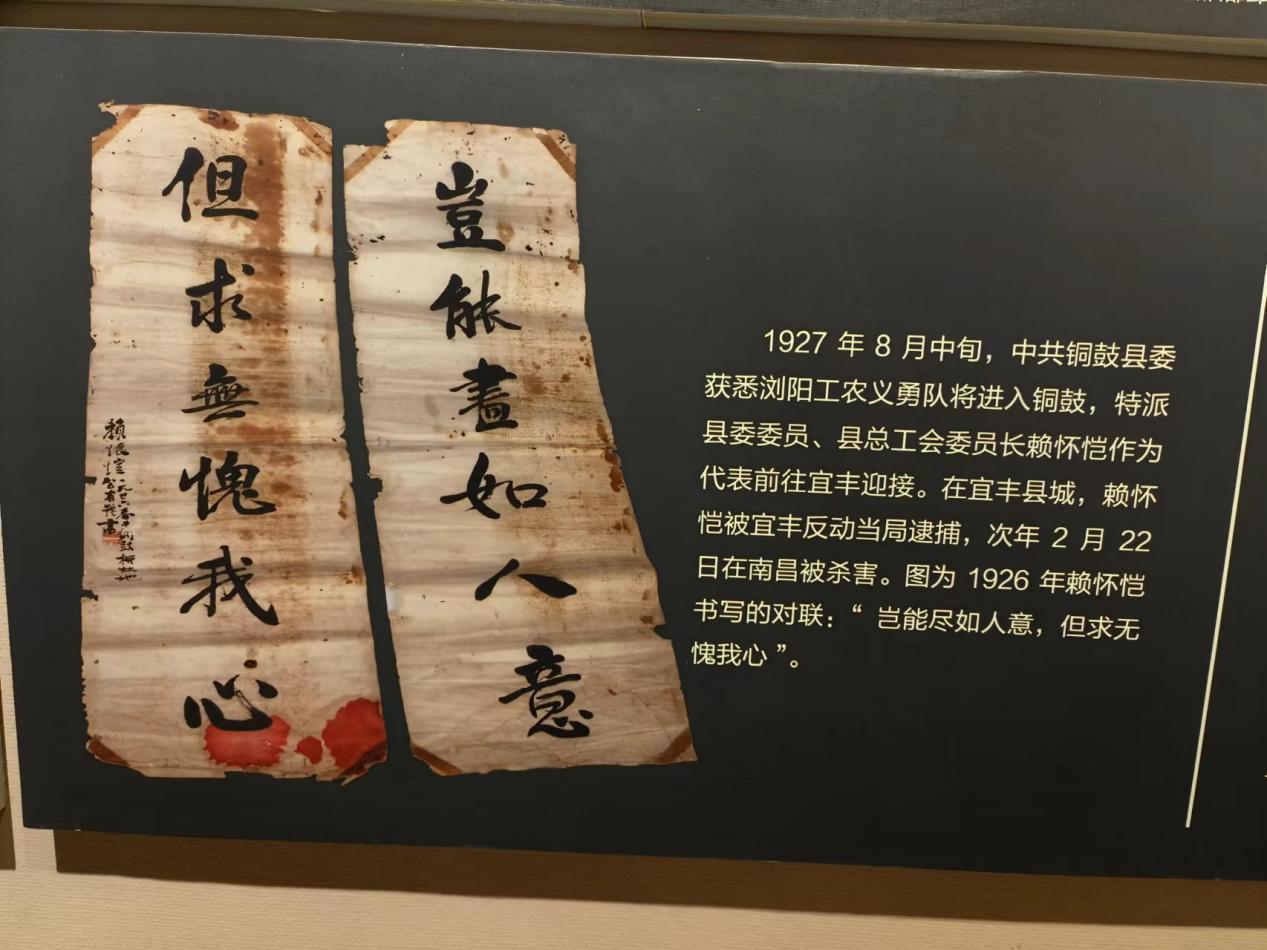 豈能盡如人意
但求無愧我心
賴懷愷
1927 年 8 月中旬，中共铜鼓县委
获悉浏阳工农义勇队将进入铜鼓，特派
县委委员、县总工会委员长赖怀恺作为
代表前往宜丰迎接。在宜丰县城，赖怀
恺被宜丰反动当局逮捕，次年 2 月 22
日在南昌被杀害。图为 1926 年赖怀恺
书写的对联：“ 岂能尽如人意，但求无
愧我心 ”。